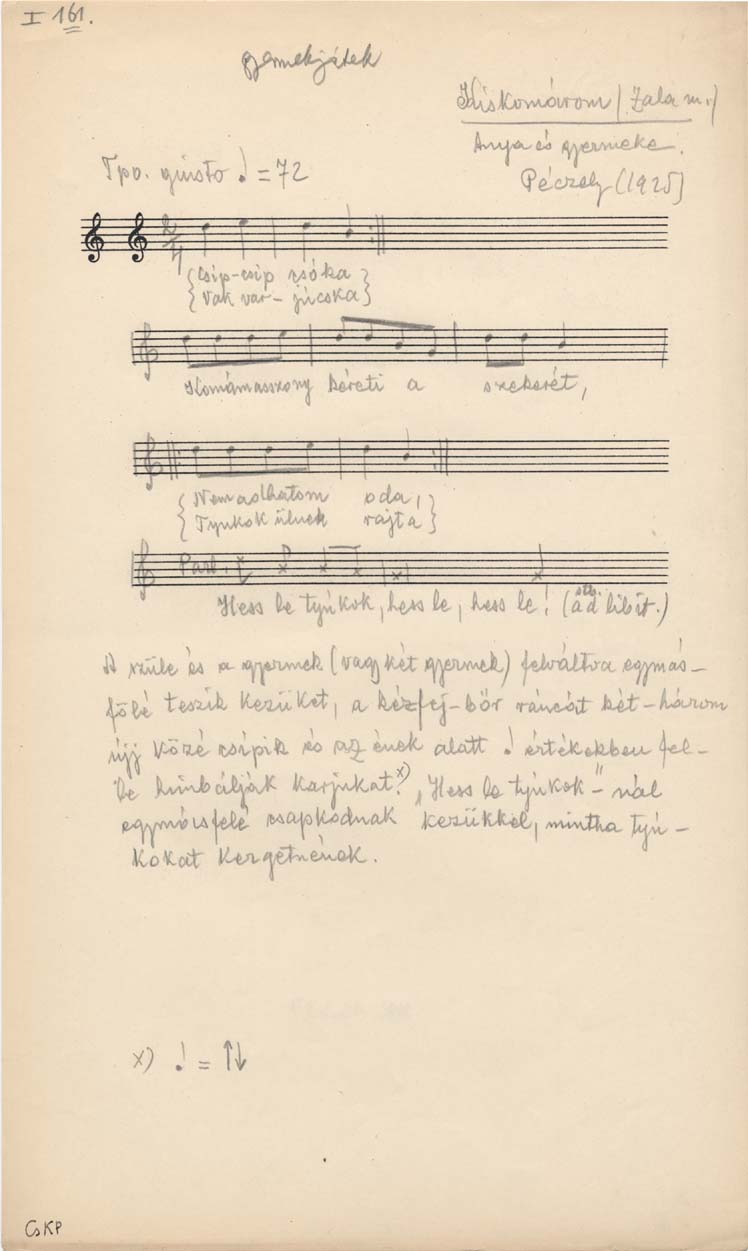 I 161.
gyermekjáték
Kiskomárom (Zala m.)
Anya és gyermeke.
Tpo. giusto ♩ = 72
Péczely (1925)
2/4
{Csip-csip csóka}
{Vak var-júcska}
Komámasszony kéreti a szekerét,
{Nem adhatom oda,}
{Tyukok ülnek rajta}
Parl.
Hess le tyúkok, hess le, hess le! (stb. ad libit.)
A szüle és a gyermek (vagy két gyermek) felváltva egymás-
fölé teszik kezüket, a kézfej-bőr ráncát két-három
ujj közé csípik és az ének alatt ♩ értékekben fel-
le himbálják karjukat.x) „Hess le tyúkok"-nál
egymásfelé csapkodnak kezükkel, mintha tyú-
kokat kergetnének.
x) ♩ = ↑↓
CsKP